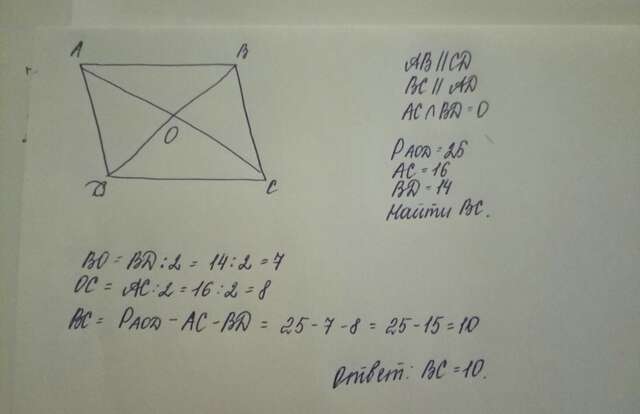 A B
AB || CD
BC || AD
AC ∩ BD = O
O
PAOD = 25
AC = 16
BD = 14
D C
Найти BC.
BO = BD : 2 = 14 : 2 = 7
OC = AC : 2 = 16 : 2 = 8
BC = PAOD - AC - BD = 25 - 7 - 8 = 25 - 15 = 10
Ответ: BC = 10.